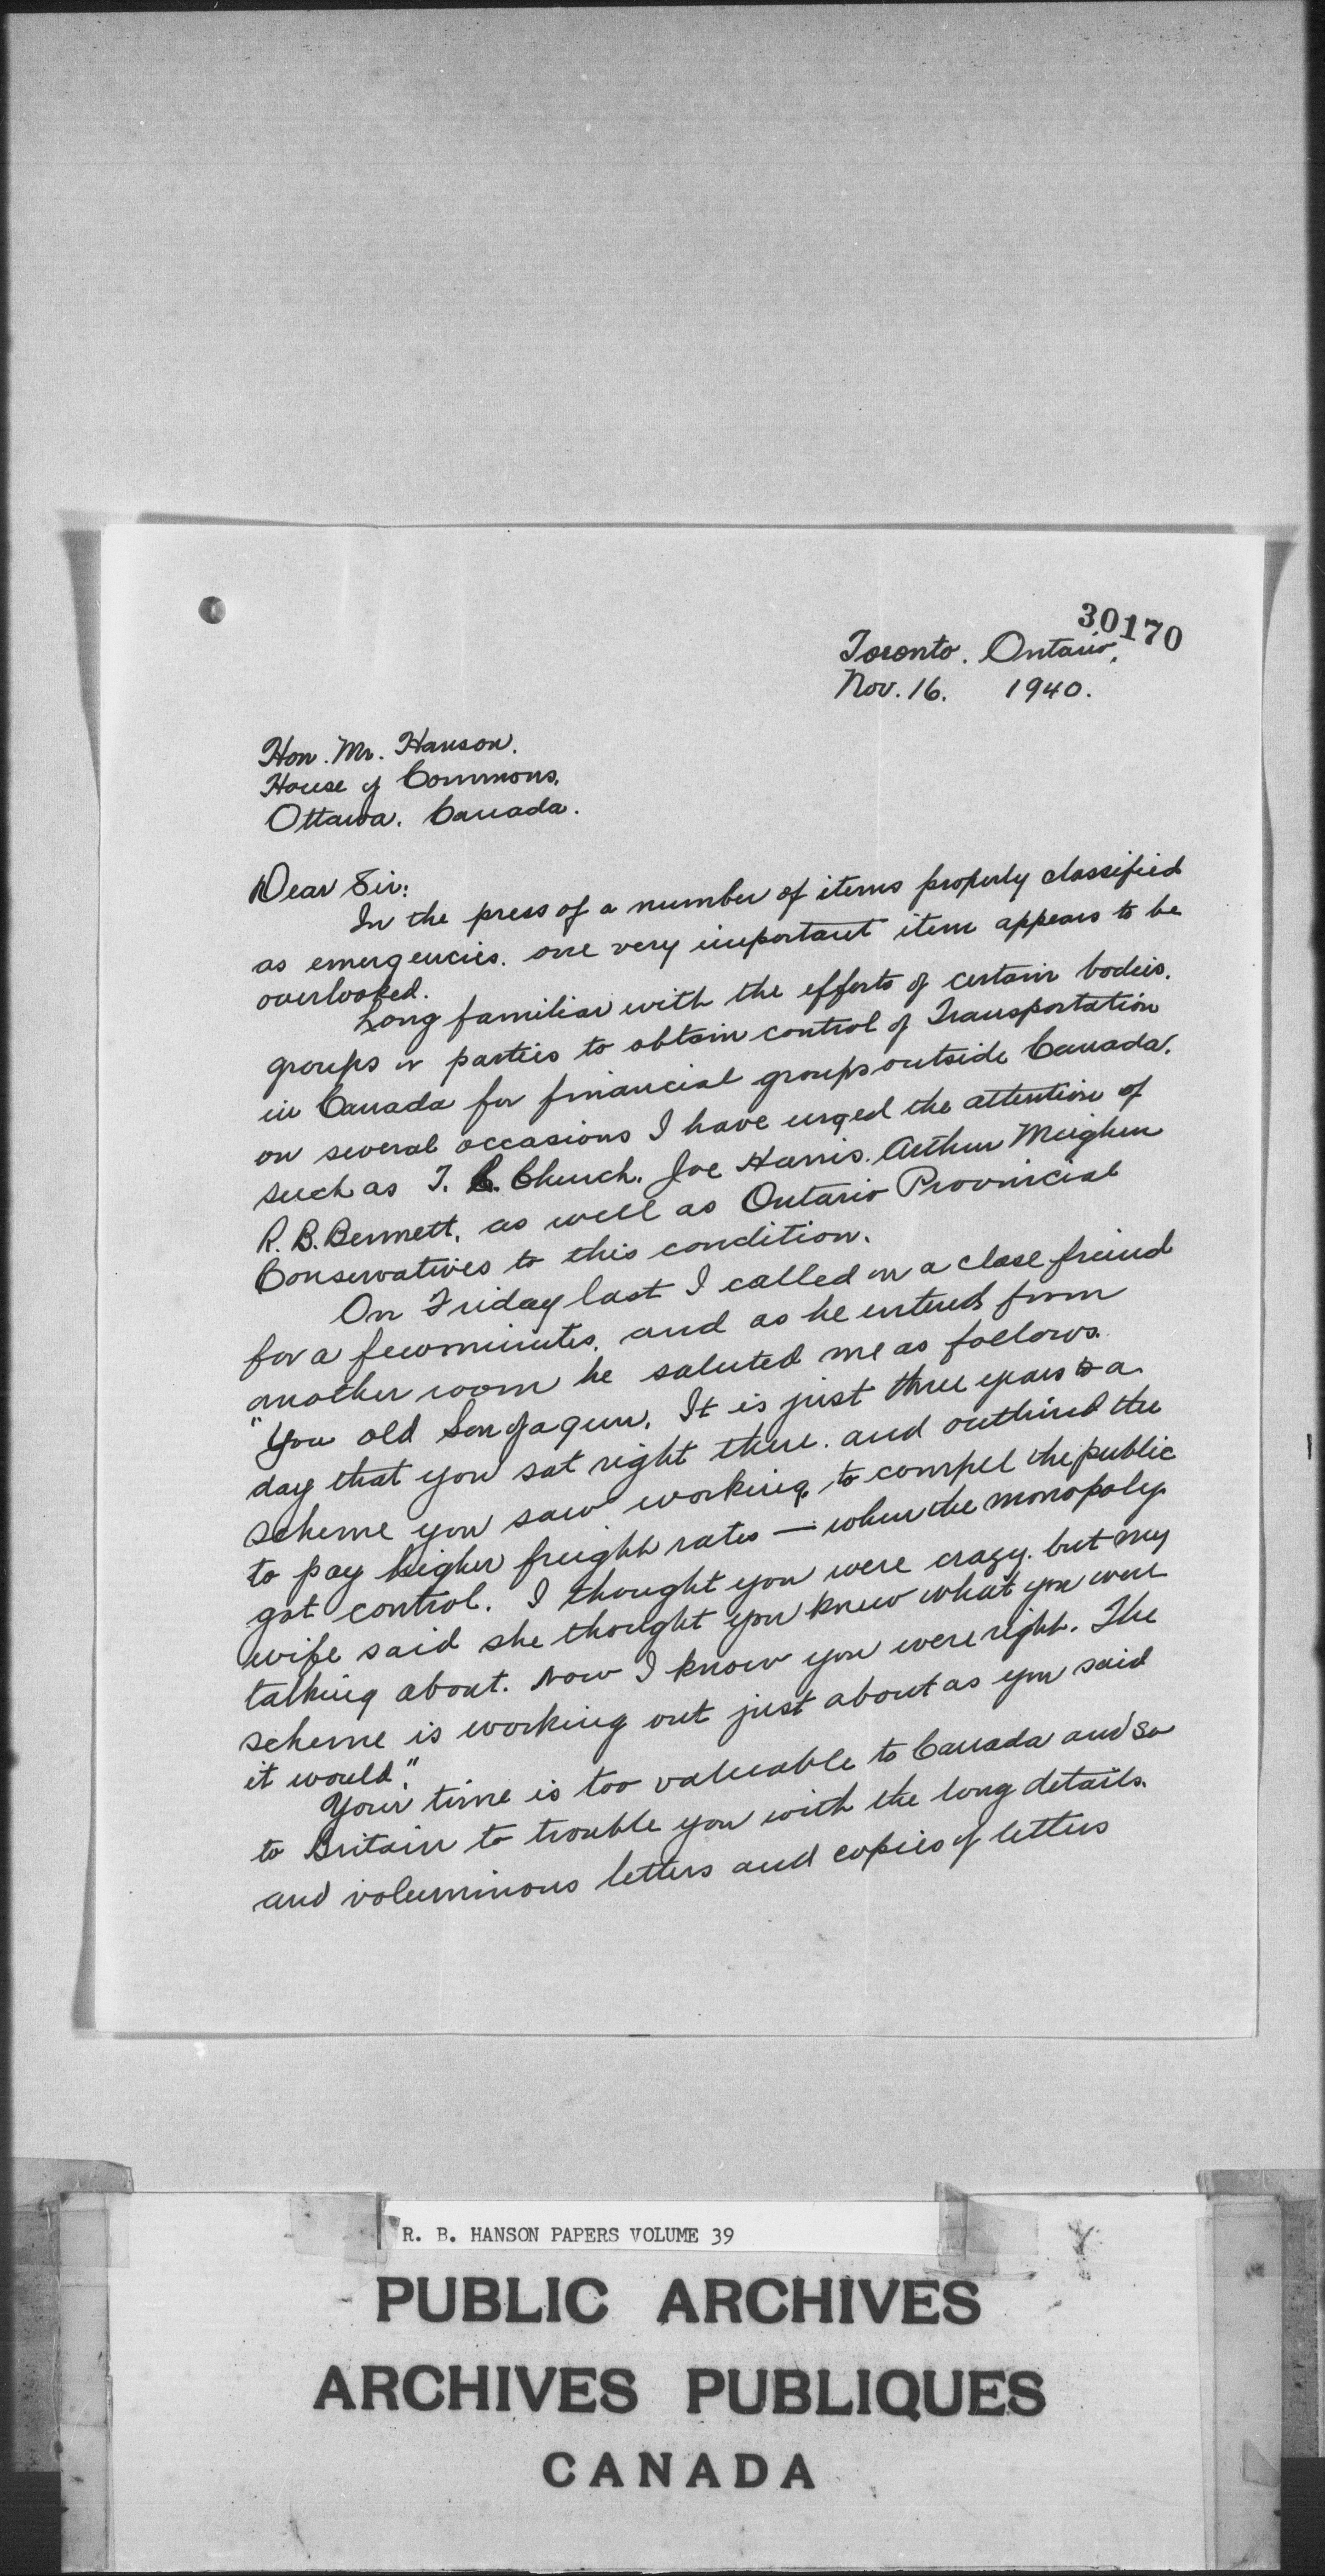 30170
Toronto. Ontario.
Nov. 16. 1940.
Hon. Mr. Hanson.
House of Commons.
Ottawa. Canada.
Dear Sir:
In the press of a number of items properly classified
as emergencies. one very important item appears to be
overlooked.
Long familiar with the efforts of certain bodies.
groups or parties to obtain control of Transportation
in Canada for financial groups outside Canada.
on several occasions I have urged the attention of
such as T. L. Church. Joe Harris. Arthur Meighen
R. B. Bennett, as well as Ontario Provincial
Conservatives to this condition.
On Friday last I called on a close freind
for a few minutes. and as he entered from
another room he saluted me as follows.
"You old Son of a gun. It is just three years to a
day that you sat right there. and outlined the
scheme you saw working. to compel the public
to pay higher freight rates — when the monopoly
got control. I thought you were crazy. but my
wife said she thought you knew what you were
talking about. Now I know you were right. The
scheme is working out just about as you said
it would."
Your time is too valuable to Canada and so
to Britain to trouble you with the long details.
and voluminous letters and copies of letters
R. B. HANSON PAPERS VOLUME 39
PUBLIC ARCHIVES
ARCHIVES PUBLIQUES
CANADA